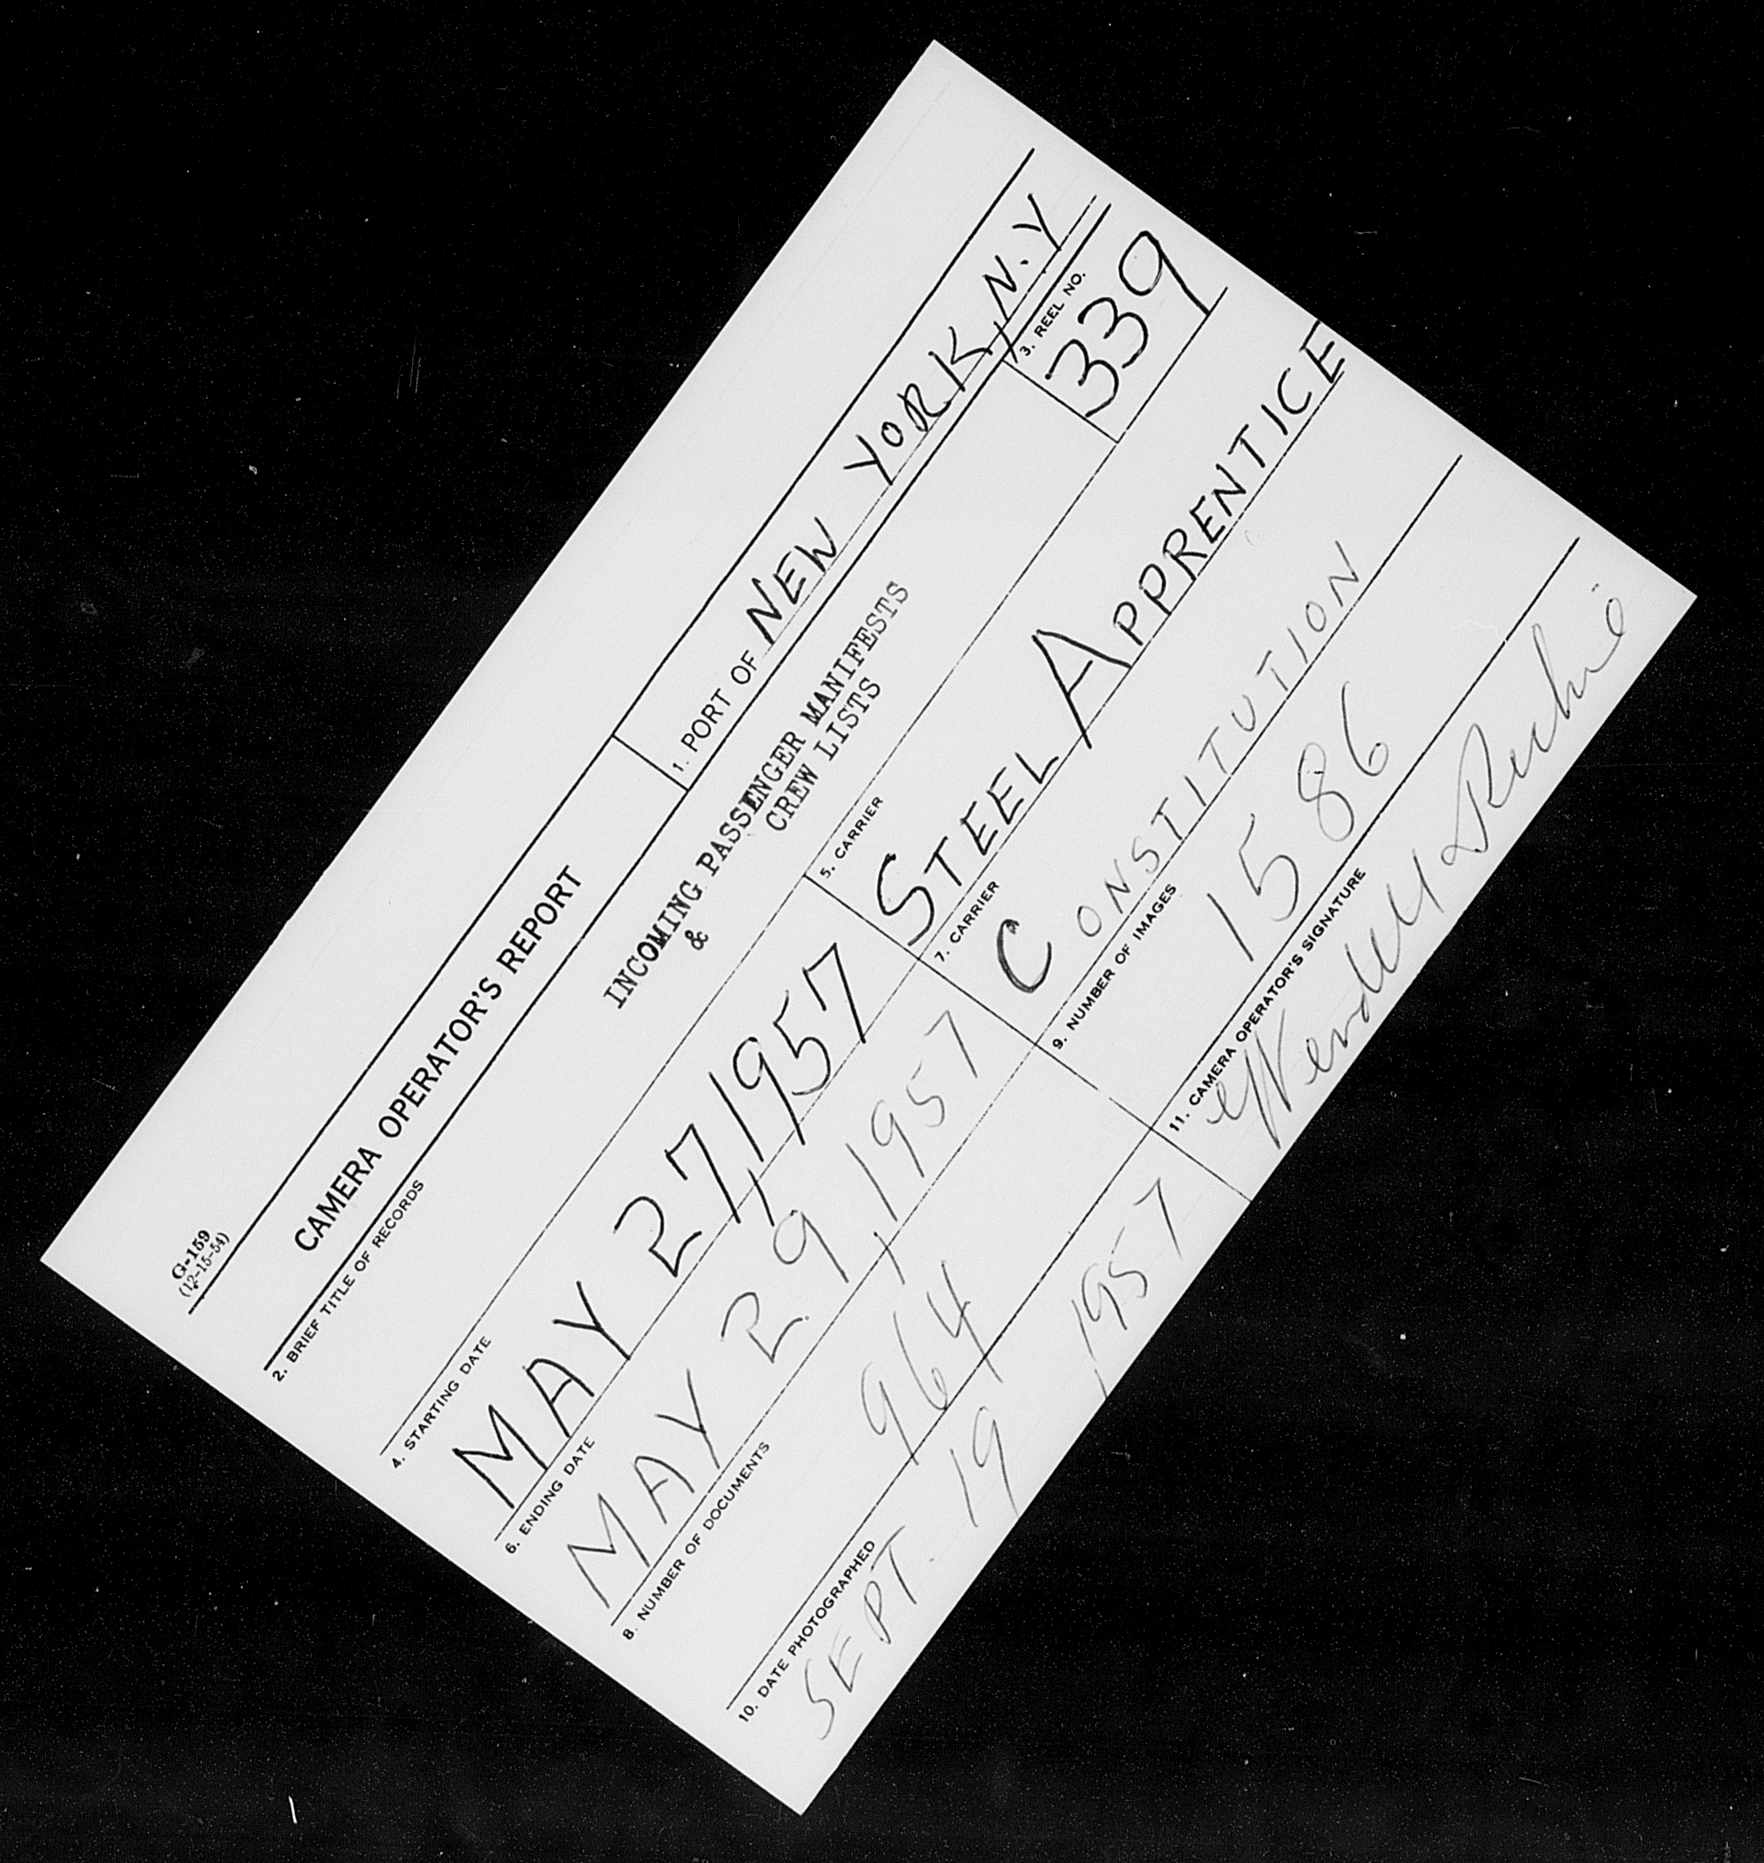 G-159
(12-15-54)
CAMERA OPERATOR'S REPORT
1. PORT OF NEW YORK, N.Y
2. BRIEF TITLE OF RECORDS
INCOMING PASSENGER MANIFESTS
& CREW LISTS
3. REEL NO.
339
4. STARTING DATE
MAY 27, 1957
5. CARRIER
STEEL APPRENTICE
6. ENDING DATE
MAY 29, 1957
7. CARRIER
CONSTITUTION
8. NUMBER OF DOCUMENTS
964
9. NUMBER OF IMAGES
1586
10. DATE PHOTOGRAPHED
SEPT. 19 1957
11. CAMERA OPERATOR'S SIGNATURE
Wendell